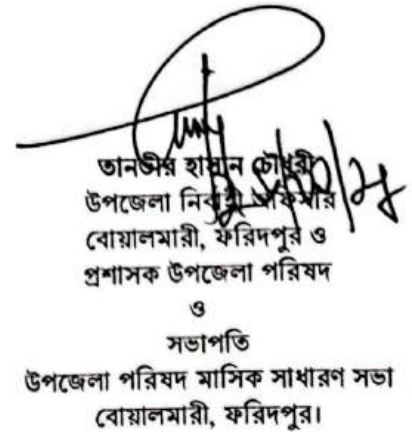 তানভীর হাসান চৌধুরী
উপজেলা নির্বাহী অফিসার
বোয়ালমারী, ফরিদপুর ও
প্রশাসক উপজেলা পরিষদ
ও
সভাপতি
উপজেলা পরিষদ মাসিক সাধারণ সভা
বোয়ালমারী, ফরিদপুর।